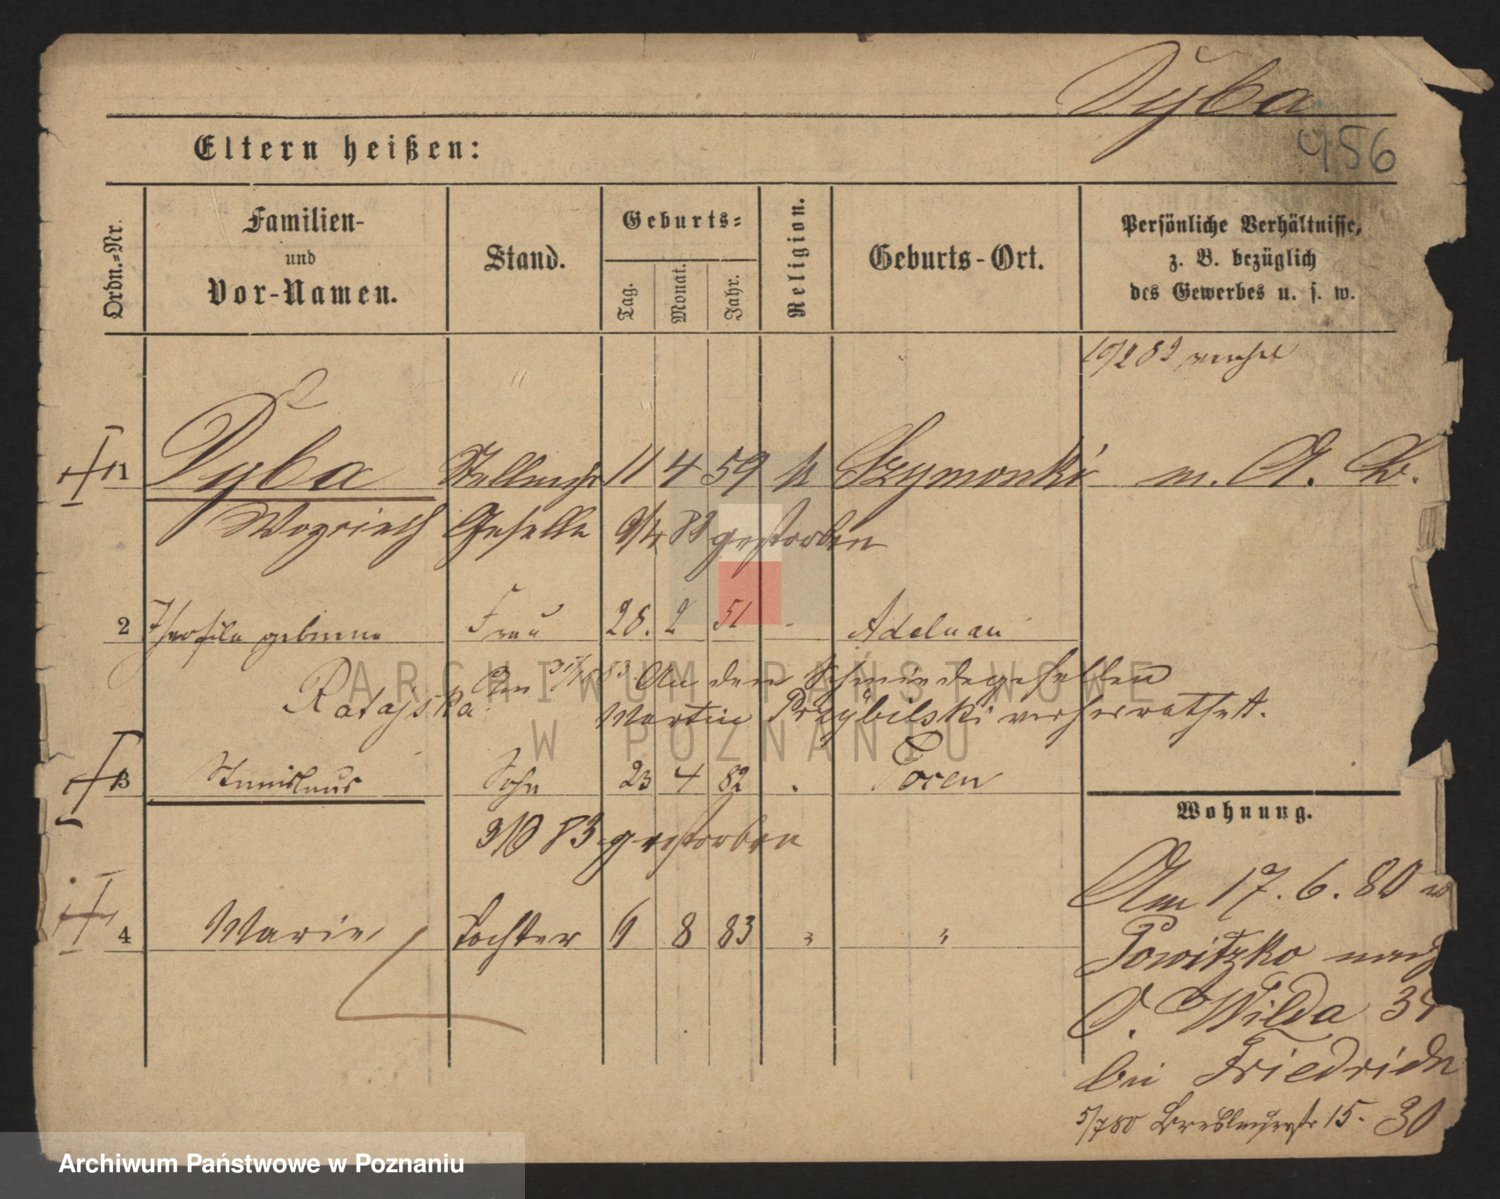 Dyba
456
Eltern heißen:
Ordn.-Nr.
Familien-
und
Vor-Namen.
Stand.
Geburts-
Tag.
Monat.
Jahr.
Religion.
Geburts-Ort.
Persönliche Verhältnisse,
z. B. bezüglich
des Gewerbes u. s. w.
1 Dyba 11 4 59 k Szymonki m. A. B.
Geselle 9/4 83 gestorben
2 geborene Frau 28. 2 51 Adelnau
Ratajska Am An den Schmiedegesellen
Martin Przybilski verheirathet.
3 Stanislaus Sohn 23 4 82 Posen
83 gestorben
4 Marie Tochter 6 8 83 " "
Wohnung.
Am 17. 6. 80
nach
O. Wilda 34
bei Friedrich
5/7 80 15. 30
ARCHIWUM PAŃSTWOWE
W POZNANIU
Archiwum Państwowe w Poznaniu